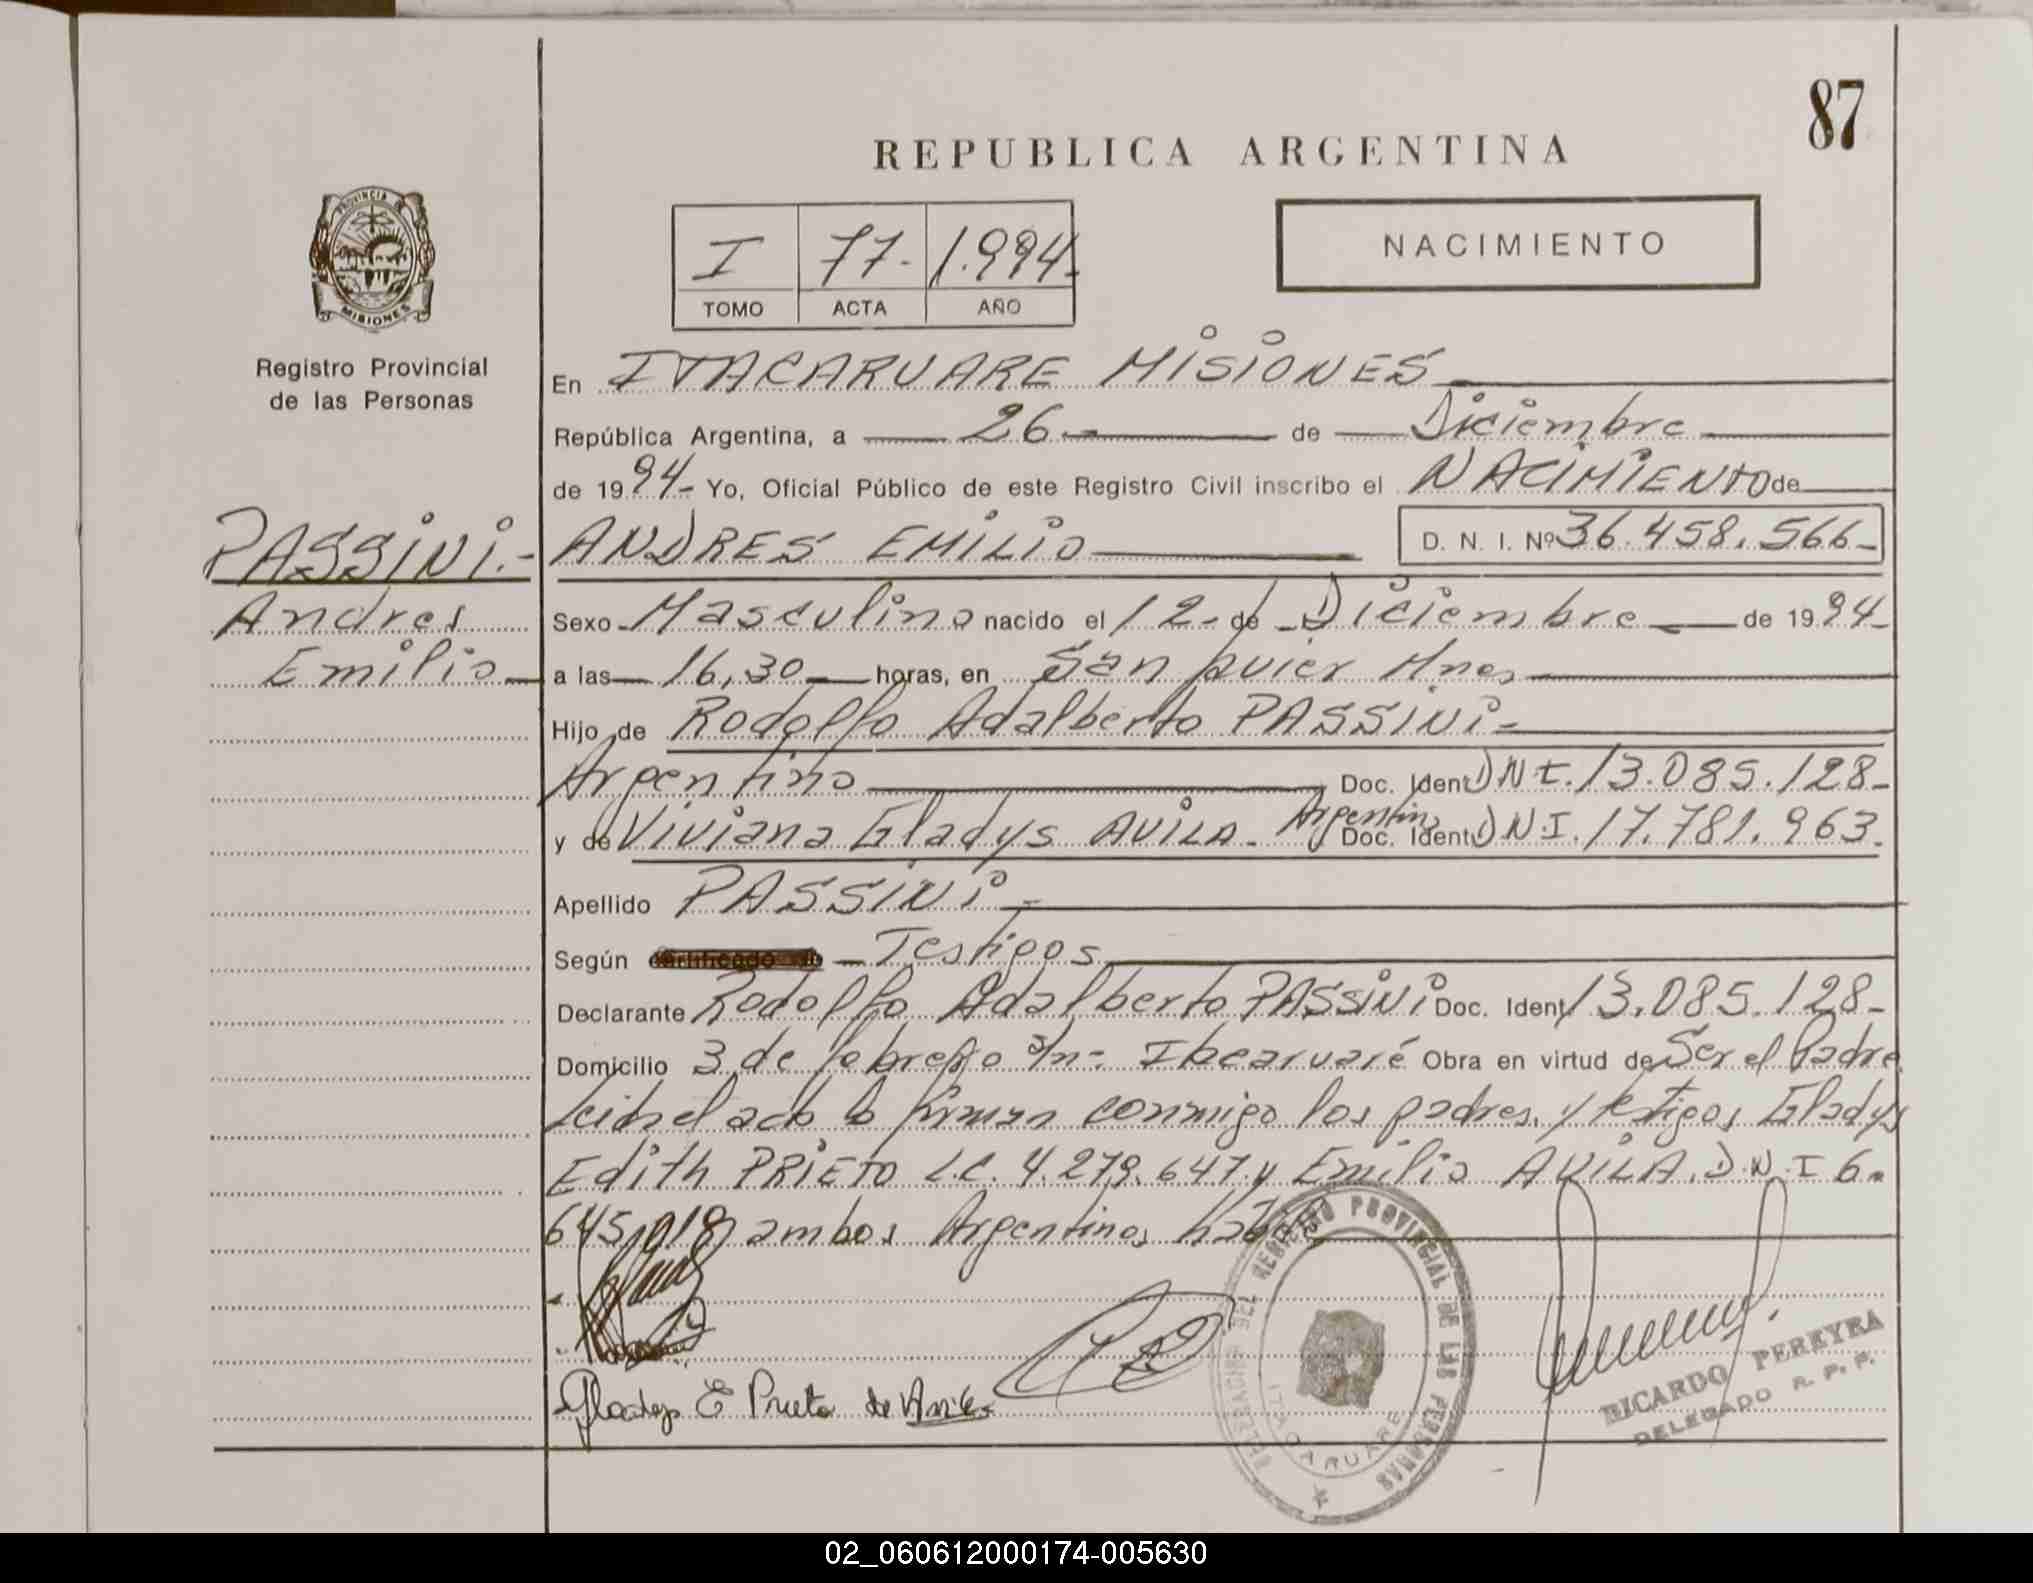 87
REPUBLICA ARGENTINA
PROVINCIA DE
MISIONES
I 77- 1.994-
TOMO ACTA AÑO
NACIMIENTO
Registro Provincial
de las Personas
En ITACARUARE MISIONES
República Argentina, a 26 de Diciembre
de 1994- Yo, Oficial Público de este Registro Civil inscribo el NACIMIENTO de
PASSINI.-
Andres
Emilio
ANDRES EMILIO D. N. I. Nº 36.458.566-
Sexo Masculino nacido el 12- de Diciembre de 1994-
a las 16,30 horas, en San Javier Mnes
Hijo de Rodolfo Adalberto PASSINI-
Argentino Doc. Ident DNI. 13.085.128-
y de Viviana Gladys AVILA- Argentina Doc. Ident DNI. 17.781.963.
Apellido PASSINI-
Según certificado de Testigos
Declarante Rodolfo Adalberto PASSINI Doc. Ident 13.085.128-
Domicilio 3 de febrero s/n- Itacaruaré Obra en virtud de Ser el Padre
Leida el acta la firman conmigo los padres, y testigos Gladys
Edith PRIETO L.C. 4.279.647 y Emilio AVILA. D.N.I 6.
645.018 ambos Argentinos
Gladys E Prieto de Avila
DELEGACION DEL REGISTRO PROVINCIAL DE LAS PERSONAS
ITACARUARE
RICARDO PEREYRA
DELEGADO R. P. P.
02_060612000174-005630